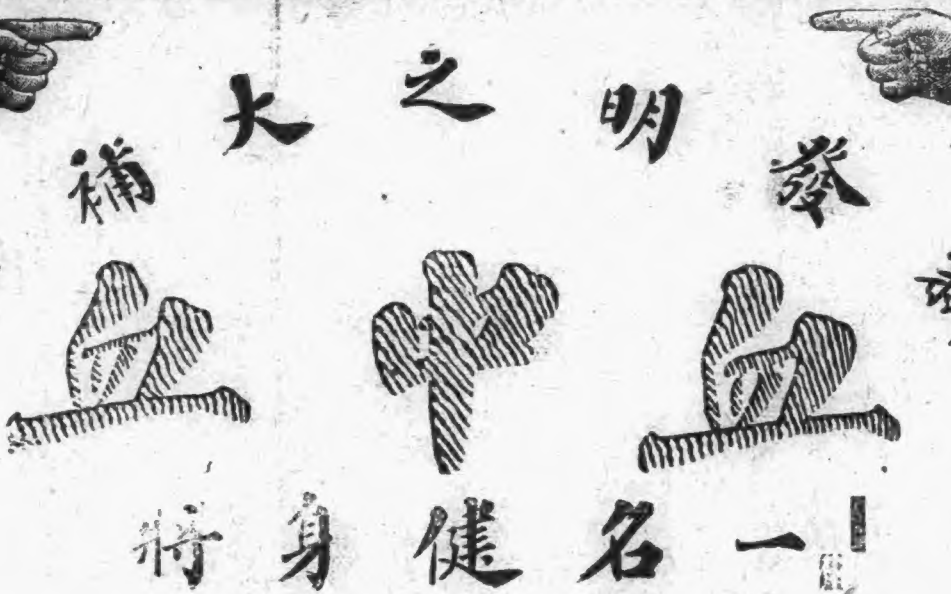 發明之大補
血中血
一名健身將